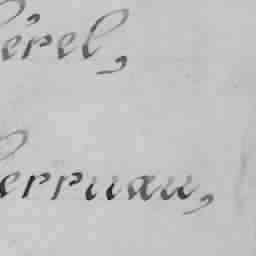 érel,
erruau,